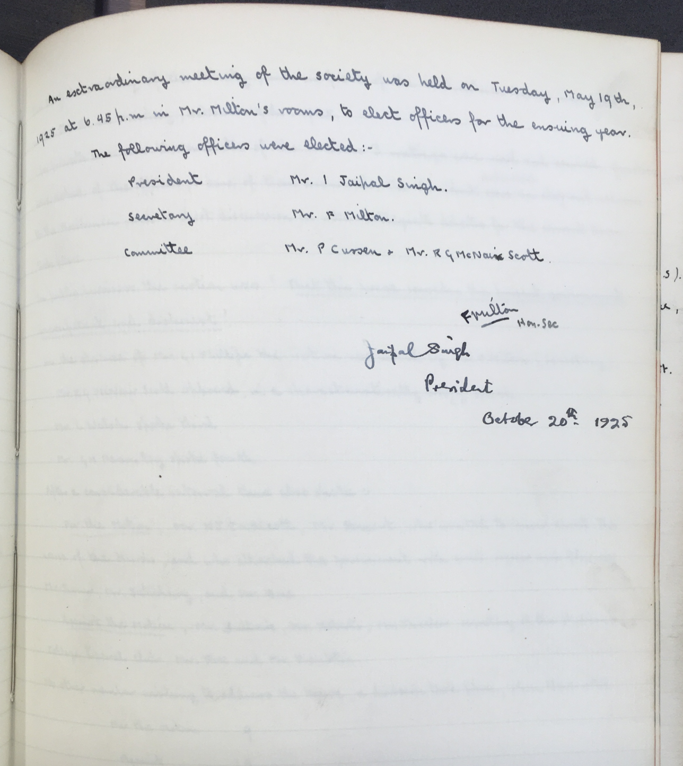 An extraordinary meeting of the society was held on Tuesday, May 19th,
1925 at 6.45 p.m in Mr. Milton's rooms, to elect officers for the ensuing year.
The following officers were elected :-
President Mr. I Jaipal Singh.
Secretary Mr. F Milton.
Committee Mr. P Cussen + Mr. R G McNair Scott
F Milton
Hon. Sec
Jaipal Singh
President
October 20th. 1925
s).